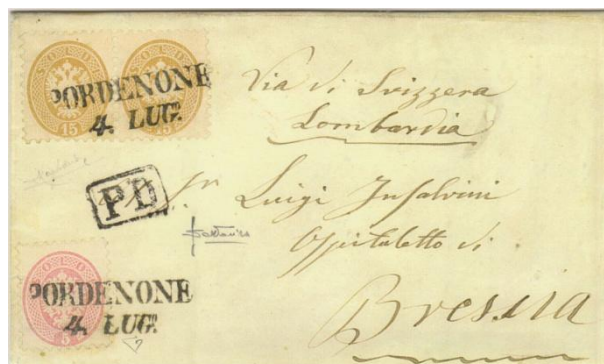 SOLD SOLD
15 15
PORDENONE
4. LUG.
Via di Svizzera
Lombardia
PD
Sr. Luigi Insalvini
Ospitaletto di
Brescia
SOLD
PORDENONE
4. LUG.
5